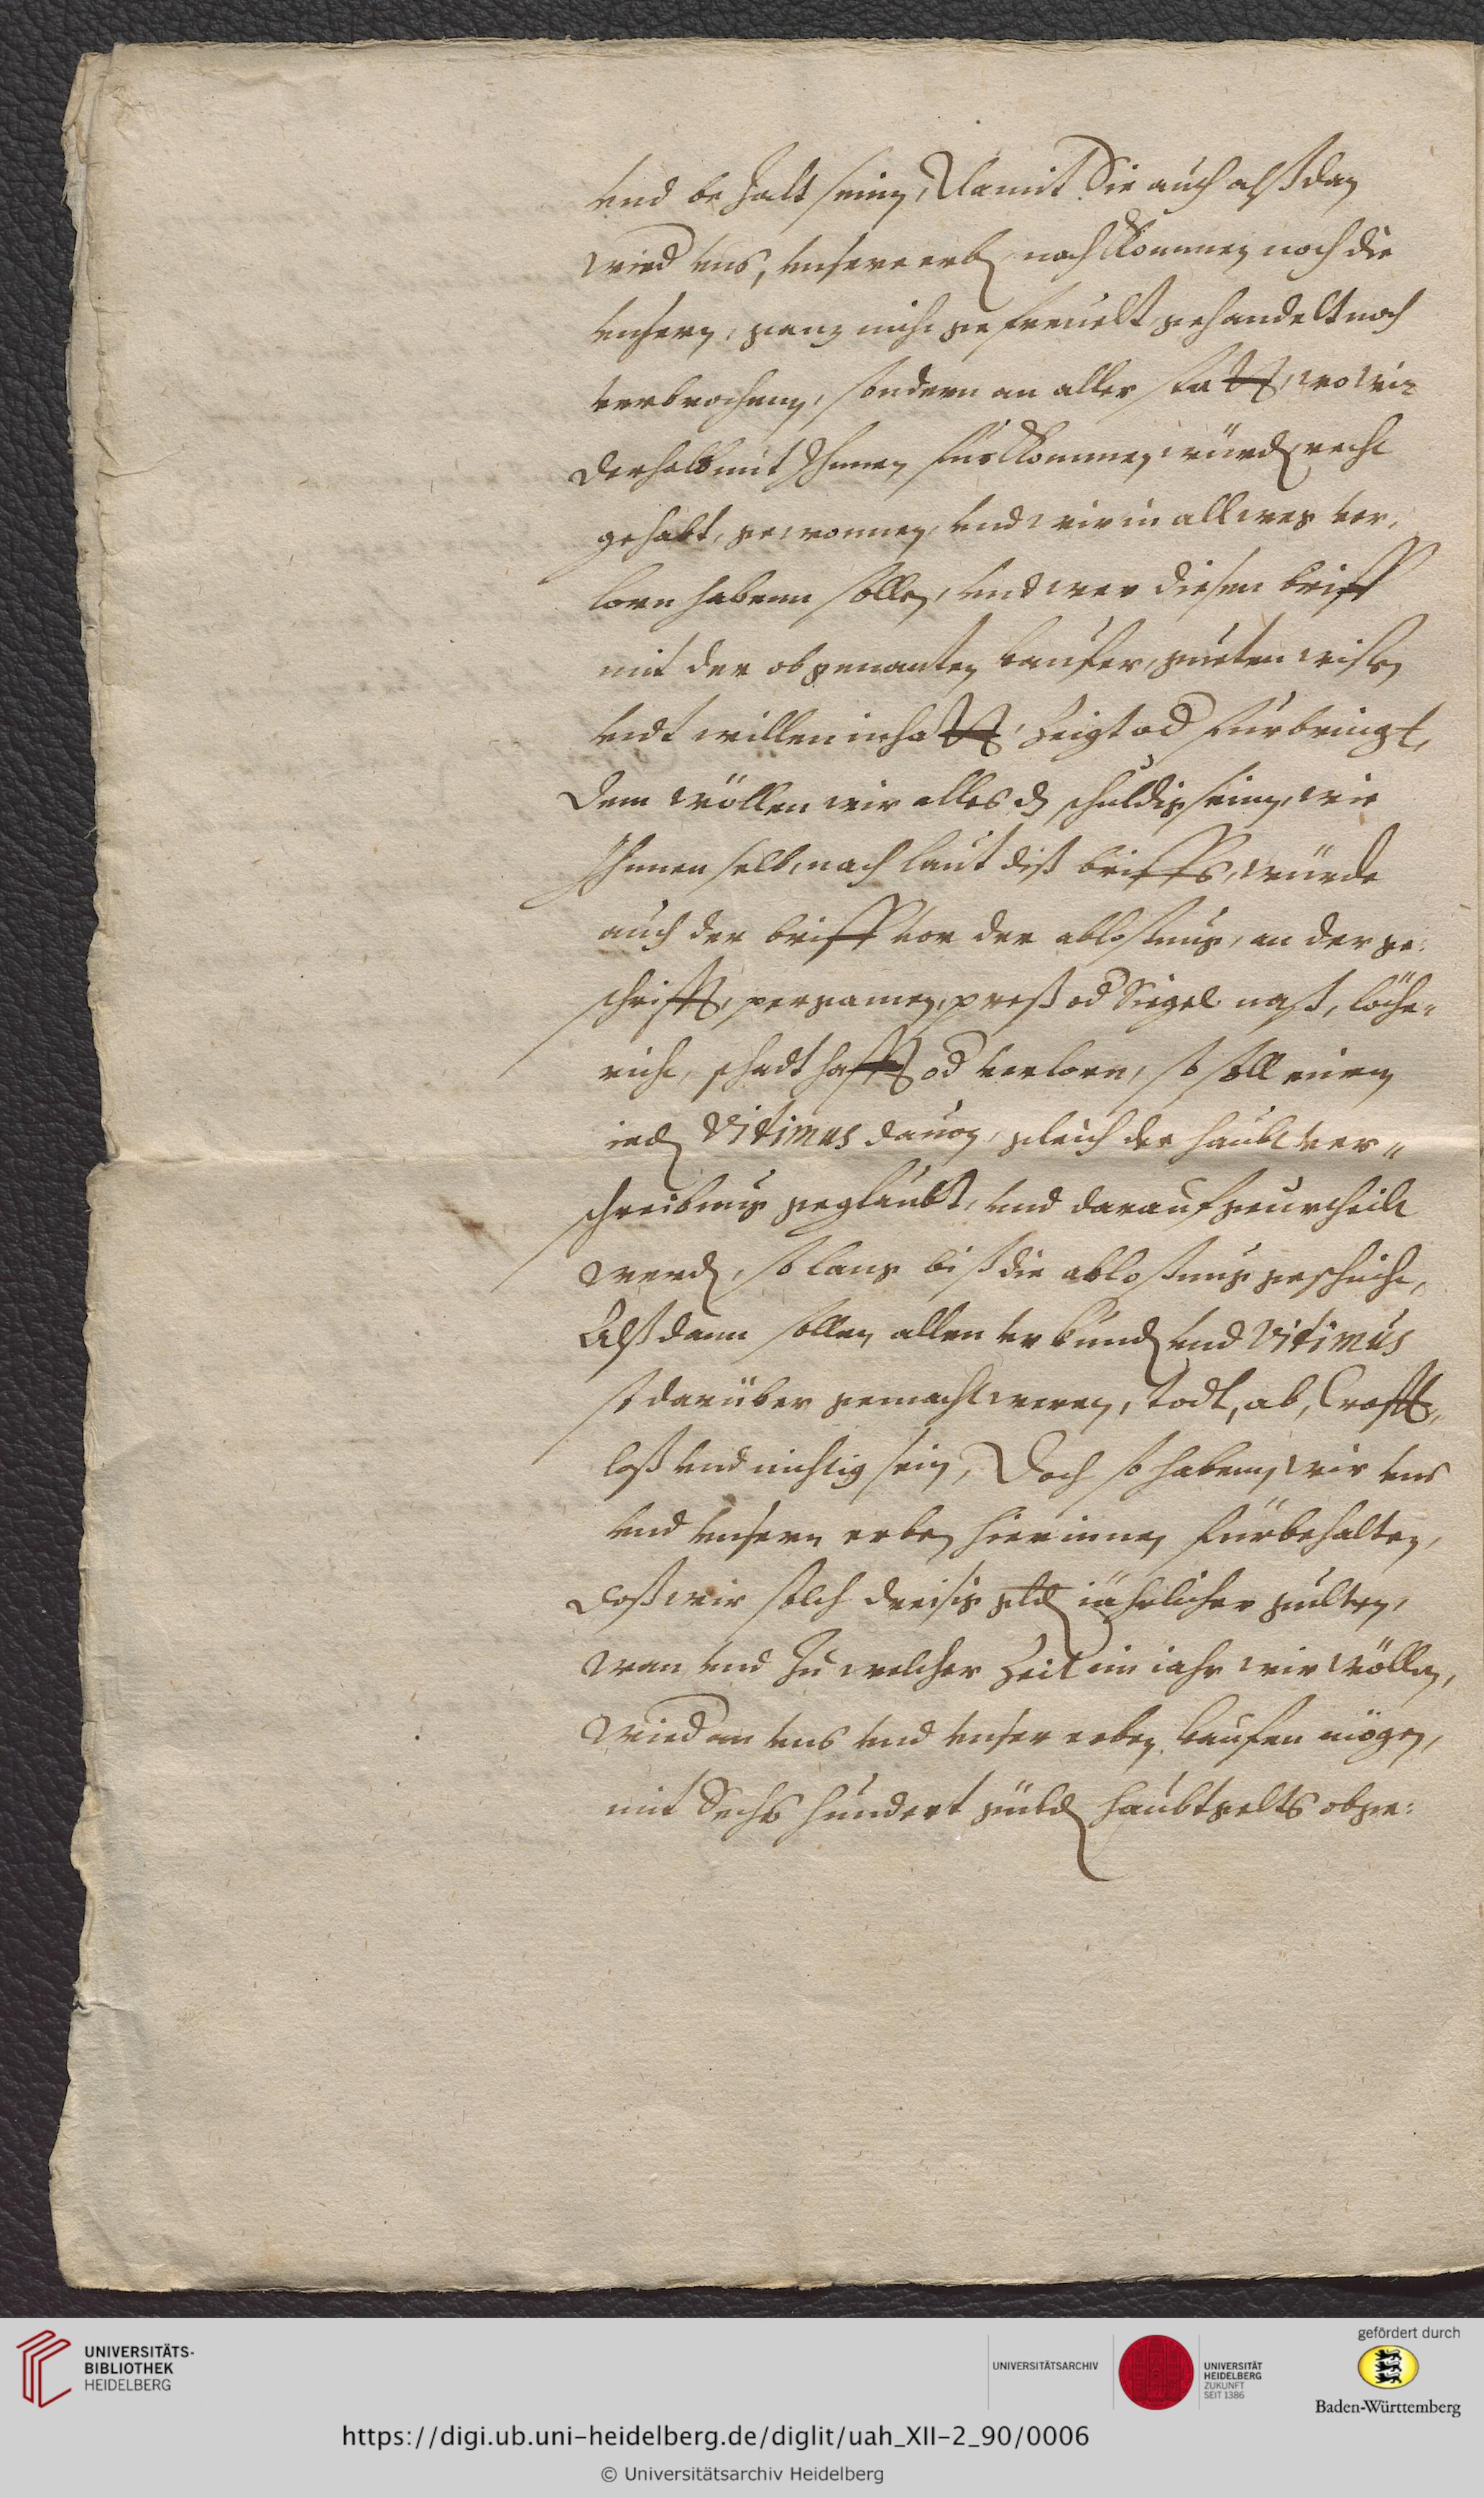 vnd bezalt seinn, Damit Sie auch alßdan
wied vns, vnsere erb nachkommen noch die
vnsern, gar nicht gefreuelt gehandelt noch
verbrochenn, sondern an aller statt, wo wir
derhalb mit Ihnnen fürkommen würd, recht
gehabt, gewonnen, vnd wir in allweg ver,
lorn habenn sollen, vnd wer diesen brieff
mit der obgenanten kaufer, guten wissen
vndt willen inhatt, zeigt od fürbringt,
dem wöllen wir alles dz schuldig seinn, wie
Ihnnen selb, nach laut diß brieffs, würde
auch der brieff vor der ablosung, an der ge-
schrifft, pergamen, preß od Siegel naß, löche-
richt, schadthafft od verlorn, so soll einem
ied Vitimus dauon, gleich der haubtver„
schreibung geglaubt, vnd darauf geurtheilt
werd, so lang biß die ablosung geschicht,
Alßdann sollen allen vrkund vnd Vitimus
so darüber gemacht weren, todt, ab, Crafft„
loß vnd nichtig sein, Doch so habenn wir vns
vnd vnsern erben hierinnen fürbehalten,
daß wir solch dreisig gld iährlicher gulten,
wan vnd zu welcher Zeit im iahr wir wöllen,
wied an vns vnd vnser erben kaufen mögen,
mit Sechs hundert güld haubtgelts obge:
UNIVERSITÄTS-
BIBLIOTHEK
HEIDELBERG
UNIVERSITÄTSARCHIV
UNIVERSITÄT
HEIDELBERG
ZUKUNFT
SEIT 1386
gefördert durch
Baden-Württemberg
https://digi.ub.uni-heidelberg.de/diglit/uah_XII-2_90/0006
© Universitätsarchiv Heidelberg